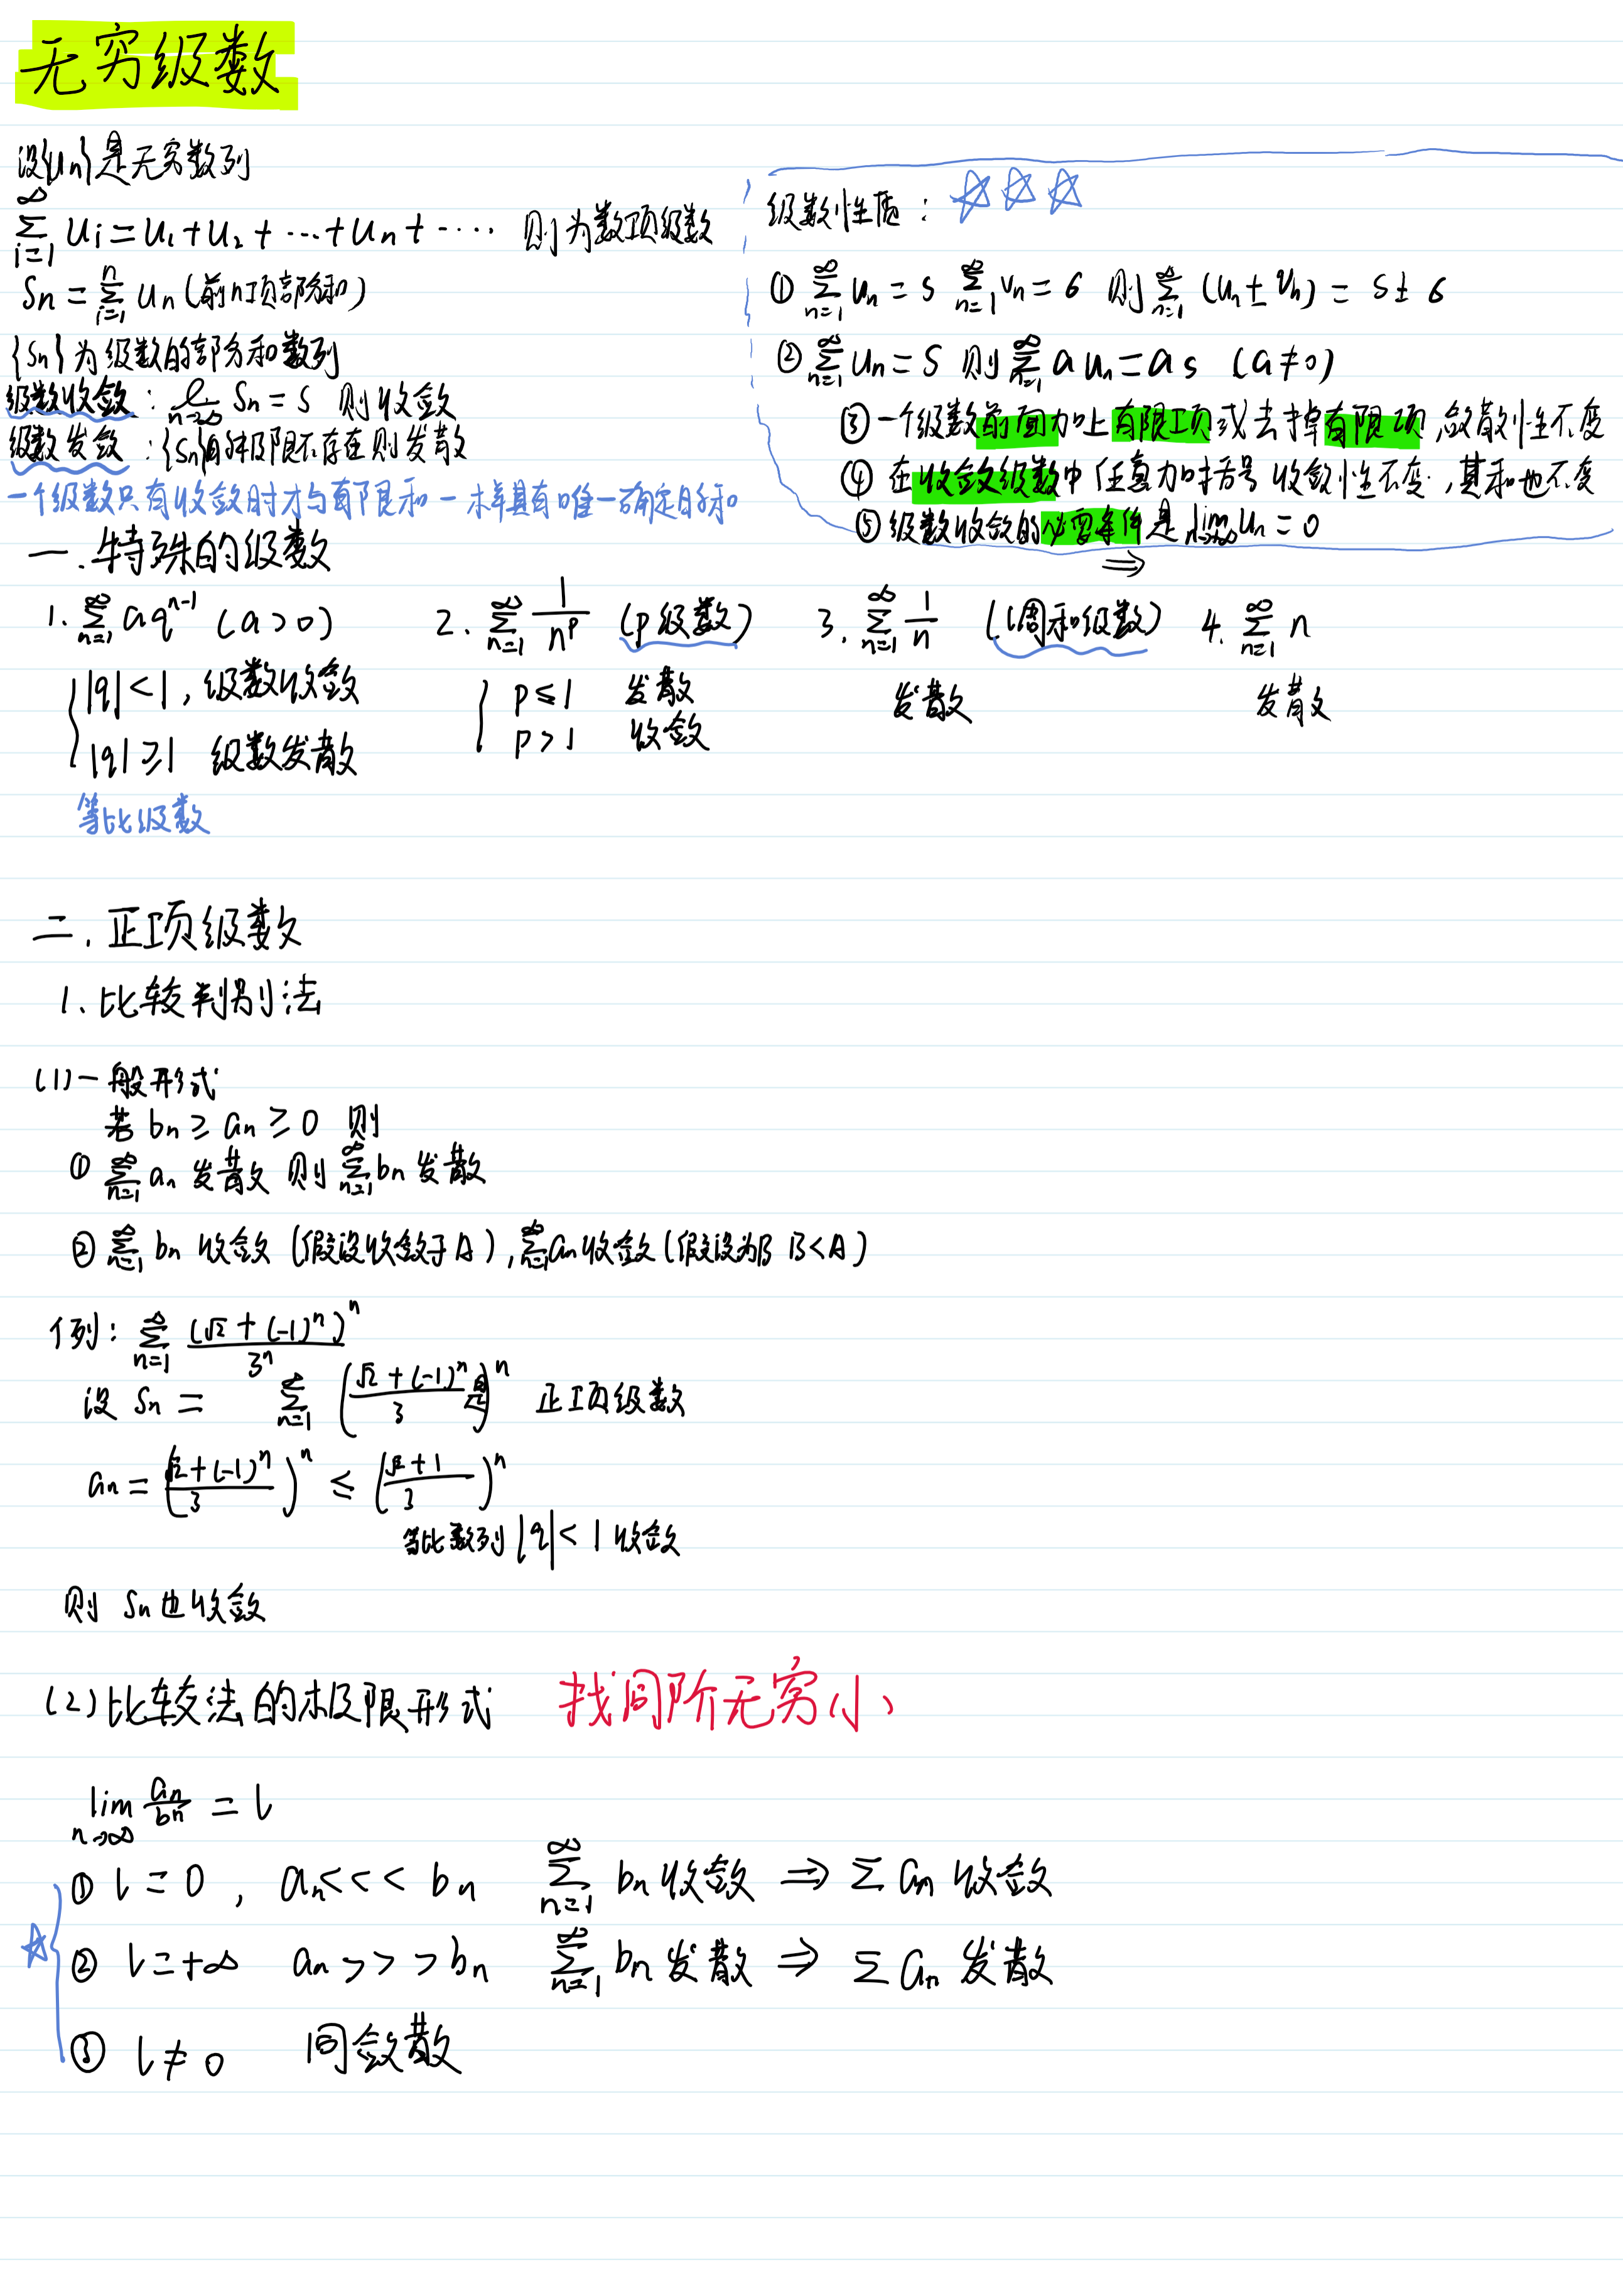 无穷级数
设{un}是无穷数列
∞∑i=1 ui=u1+u2+…+un+…… 则为数项级数
Sn=n∑i=1 un(前n项部分和)
{Sn}为级数的部分和数列
级数收敛: lim n→∞ Sn=s 则收敛
级数发散: {Sn}的极限不存在则发散
一个级数只有收敛时才与有限和一样具有唯一确定的和
级数性质: ☆☆☆
① ∞∑n=1 un=s ∞∑n=1 vn=6 则 ∞∑n=1 (un±vn)=s±6
② ∞∑n=1 un=s 则 ∞∑n=1 aun=as (a≠0)
③一个级数前面加上有限项或去掉有限项,敛散性不变
④ 在收敛级数中任意加括号 收敛性不变,其和也不变
⑤级数收敛的必要条件是 lim n→∞ un=0
⇒
一.特殊的级数
1. ∞∑n=1 aq^(n-1) (a>0) 2. ∞∑n=1 1/n^p (p级数) 3. ∞∑n=1 1/n (调和级数) 4. ∞∑n=1 n
|q|<1,级数收敛 p≤1 发散 发散 发散
|q|≥1 级数发散 p>1 收敛
等比级数
二.正项级数
1.比较判别法
(1)一般形式
若 bn≥an≥0 则
① ∞∑n=1 an 发散 则 ∞∑n=1 bn 发散
② ∞∑n=1 bn 收敛(假设收敛于A),∞∑n=1 an收敛(假设为B B<A)
例: ∞∑n=1 (√2+(-1)^n)^n/3^n
设 Sn= ∞∑n=1 ((√2+(-1)^n)/3)^n 是 正项级数
an=((√2+(-1)^n)/3)^n ≤ ((√2+1)/3)^n
等比数列|q|<1 收敛
则 Sn也收敛
(2)比较法的极限形式 找同阶无穷小
lim n→∞ an/bn=l
☆ ① l=0, an<<<bn ∞∑n=1 bn收敛 ⇒ ∑an收敛
② l=+∞ an>>>bn ∞∑n=1 bn发散 ⇒ ∑an 发散
③ l≠0 同敛散